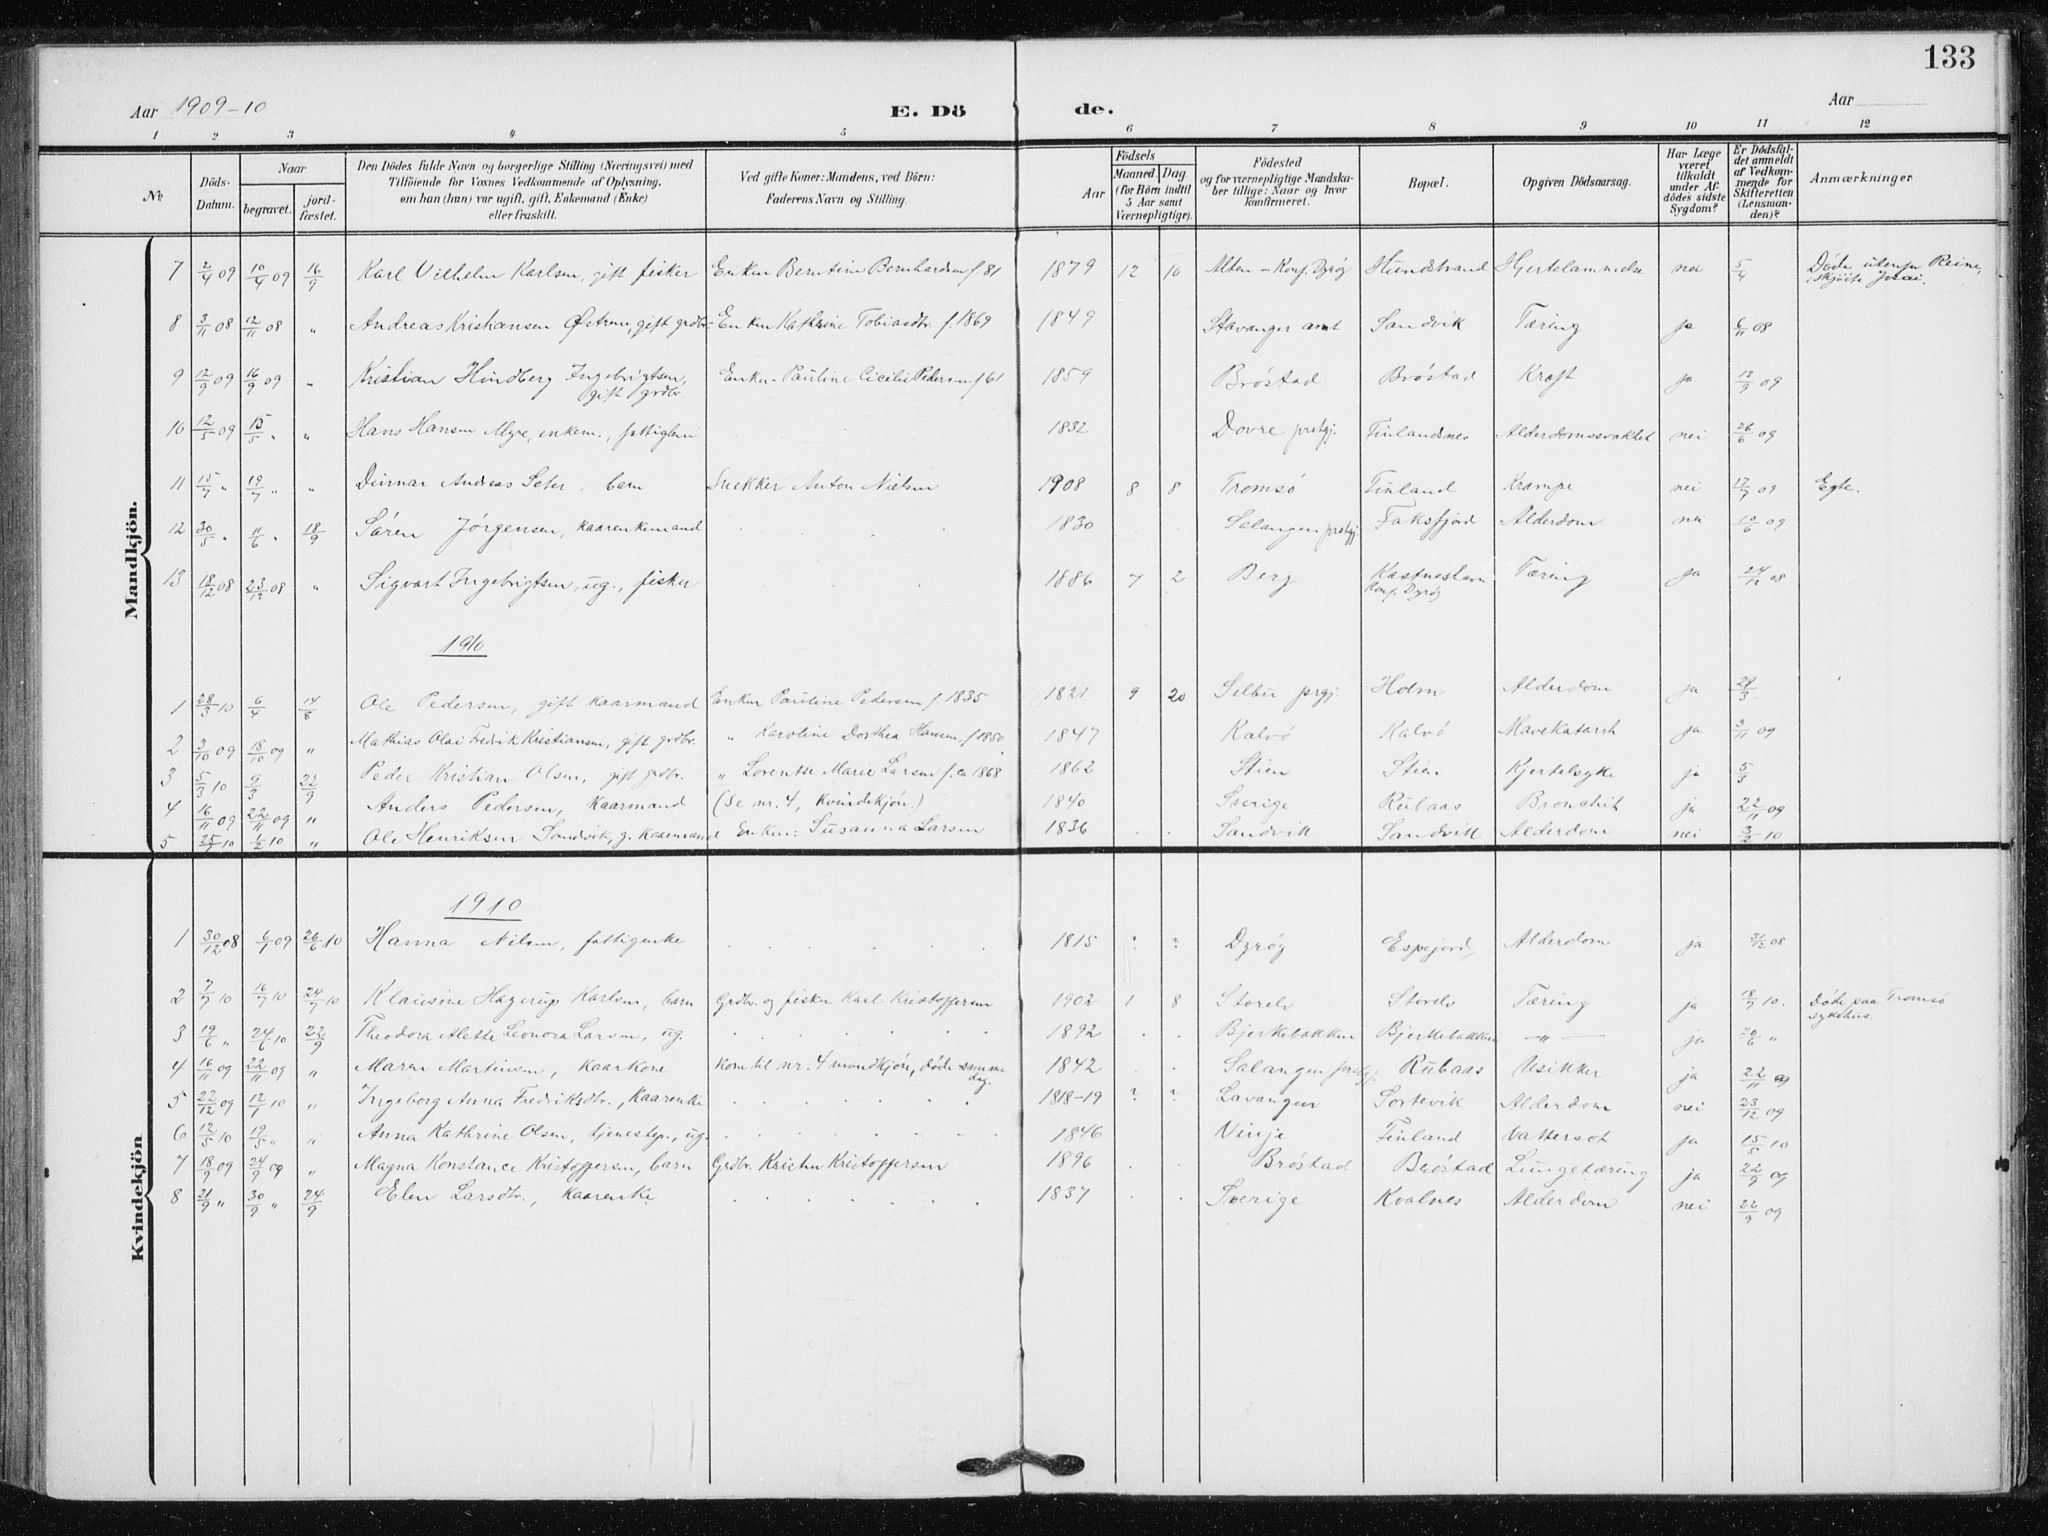 133
Aar 1909-10 E. Dö de. Aar
1 2 3 4 5 6 7 8 9 10 11 12
№ Döds-Datum. Naar begravet. jord-fæstet. Den Dödes fulde Navn og borgerlige Stilling (Næringsvei) med Tilföiende for Voxnes Vedkommende af Oplysning, om han (hun) var ugift, gift, Enkemand (Enke) eller fraskilt. Ved gifte Koner: Mandens, ved Börn: Faderens Navn og Stilling. Aar Födsels Maaned. Dag. (for Börn indtil 5 Aar samt Værnepligtige). Födested og for værnepligtige Mandska-ber tillige: Naar og hvor konfirmeret. Bopæl. Opgiven Dödsaarsag. Har Læge været tilkaldt under Af-dödes sidste Sygdom? Er Dödsfal-det anmeldt af Vedkom-mende for Skifteretten (Lensman-den)? Anmærkninger
Mandkjön.
7 2/4 09 10/4 09 16/9 Karl Vilhelm Karlsen, gift fisker Enken Berntine Bernhardsen f. 81 1879 12 10 Alten - Konf. Dyrøy Hundstrand Hjertelammelse nei 5/4 Døde utenfor Reine, i skjøite
8 3/11 08 12/11 08 " Andreas Kristiansen Østrem, gift grdbr. Enken Kathrine Tobiasdtr. f. 1869 1849 Stavanger amt Sandvik Tæring ja 6/11 08
9 12/9 09 16/9 09 " Kristian Hindberg Ingebrigtsen, gift grdbr. Enken Pauline Cicilie Pedersen f 61 1859 Brøstad Brøstad Kræft ja 12/9 09
10 12/5 09 15/5 " " Hans Hansen Myre, enkem., fattiglem 1832 Dovre prstgj. Finlandsnes Alderdomssvakhet nei 26/6 09
11 15/7 " 19/7 " " Andreas Seter. barn Snekker Anton Nielsen 1908 8 8 Tromsø Finland Krampe nei 17/7 09 Egte.
12 30/5 " 11/6 " 18/9 Søren Jørgensen, Kaarenkemand 1830 Salangen prstgj. Faksfjord Alderdom nei 10/6 09
13 18/12 08 23/12 08 " Sigvart Ingebrigtsen, ug., fisker 1886 7 2 Berg Kastneshavn Konf. Dyrøy Tæring ja 24/12 08
1910
1 28/3 10 6/4 14/8 Ole Pedersen, gift kaarmand Enken Pauline Pedersen f. 1835 1821 9 20 Selbu prgj. Holm Alderdom ja 29/3
2 3/10 09 18/10 09 " Mathias Olai Fredrik Kristiansen, gift grdbr. " Karoline Dorthea Hansen, f 1850 1847 Kalvø Kalvø Mavekatarrh ja 3/11 09
3 5/3 10 9/3 22/9 Peder Kristian Olsen, gift grdbr. " Lorentse Marie Larsen f. ca 1868 1862 Stien Stien Kjertelsyke ja 5/3
4 16/11 09 22/11 09 " Anders Pedersen, Kaarmand (Se nr. 4, kvindekjøn.) 1840 Sverige Rubaas Bronchit ja 22/11 09
5 25/1 10 1/2 10 " Ole Henriksen Sandvik, g. Kaarmand Enken: Susanna Larsen 1836 Sandvik Sandvik Alderdom nei 3/2 10
Kvindekjön
1910
1 30/12 08 6/1 09 26/6 10 Hanna Nilsen, fattigenke 1815 ? ? Dyrøy Espejord Alderdom ja 31/12 08
2 7/7 10 16/7 10 24/7 10 Klausine Hagerup Karlsen, barn Grdbr. og fisker Karl Kristoffersen 1902 1 8 Storelv Storelv Tæring ja 18/7 10. Døde paa Tromsø sykehus.
3 19/6 " 24/6 10 22/9 Theodora Alette Leonora Larsen, ug. 1892 Bjerkebakken Bjerkebakken — " — ja 20/6 "
4 16/11 09 22/11 09 " Maren Martinsen, Kaarkone Kone til nr. 4 mandkjön, døde samme dag. 1842 Salangen prstgj. Rubaas Usikker ja 22/11 09
5 22/12 09 12/1 10 " Ingeborg Anna Fredriksdtr., Kaarenke 1818-19 ? ? Lavangen Sortevik Alderdom nei 23/12 09
6 12/5 10 19/5 " " Anna Kathrine Olsen, tjenestep., ug. 1846 Vinje Finland Vattersot ja 15/5 10
7 18/9 09 24/9 09 " Magna Konstance Kristoffersen, barn Grdbr. Kristen Kristoffersen 1896 Brøstad Brøstad Lungetæring ja 22/9 09
8 21/9 " 30/9 " 24/9 Elen Larsdtr., Kaarenke 1837 Sverige Kvalnes Alderdom nei 22/9 09